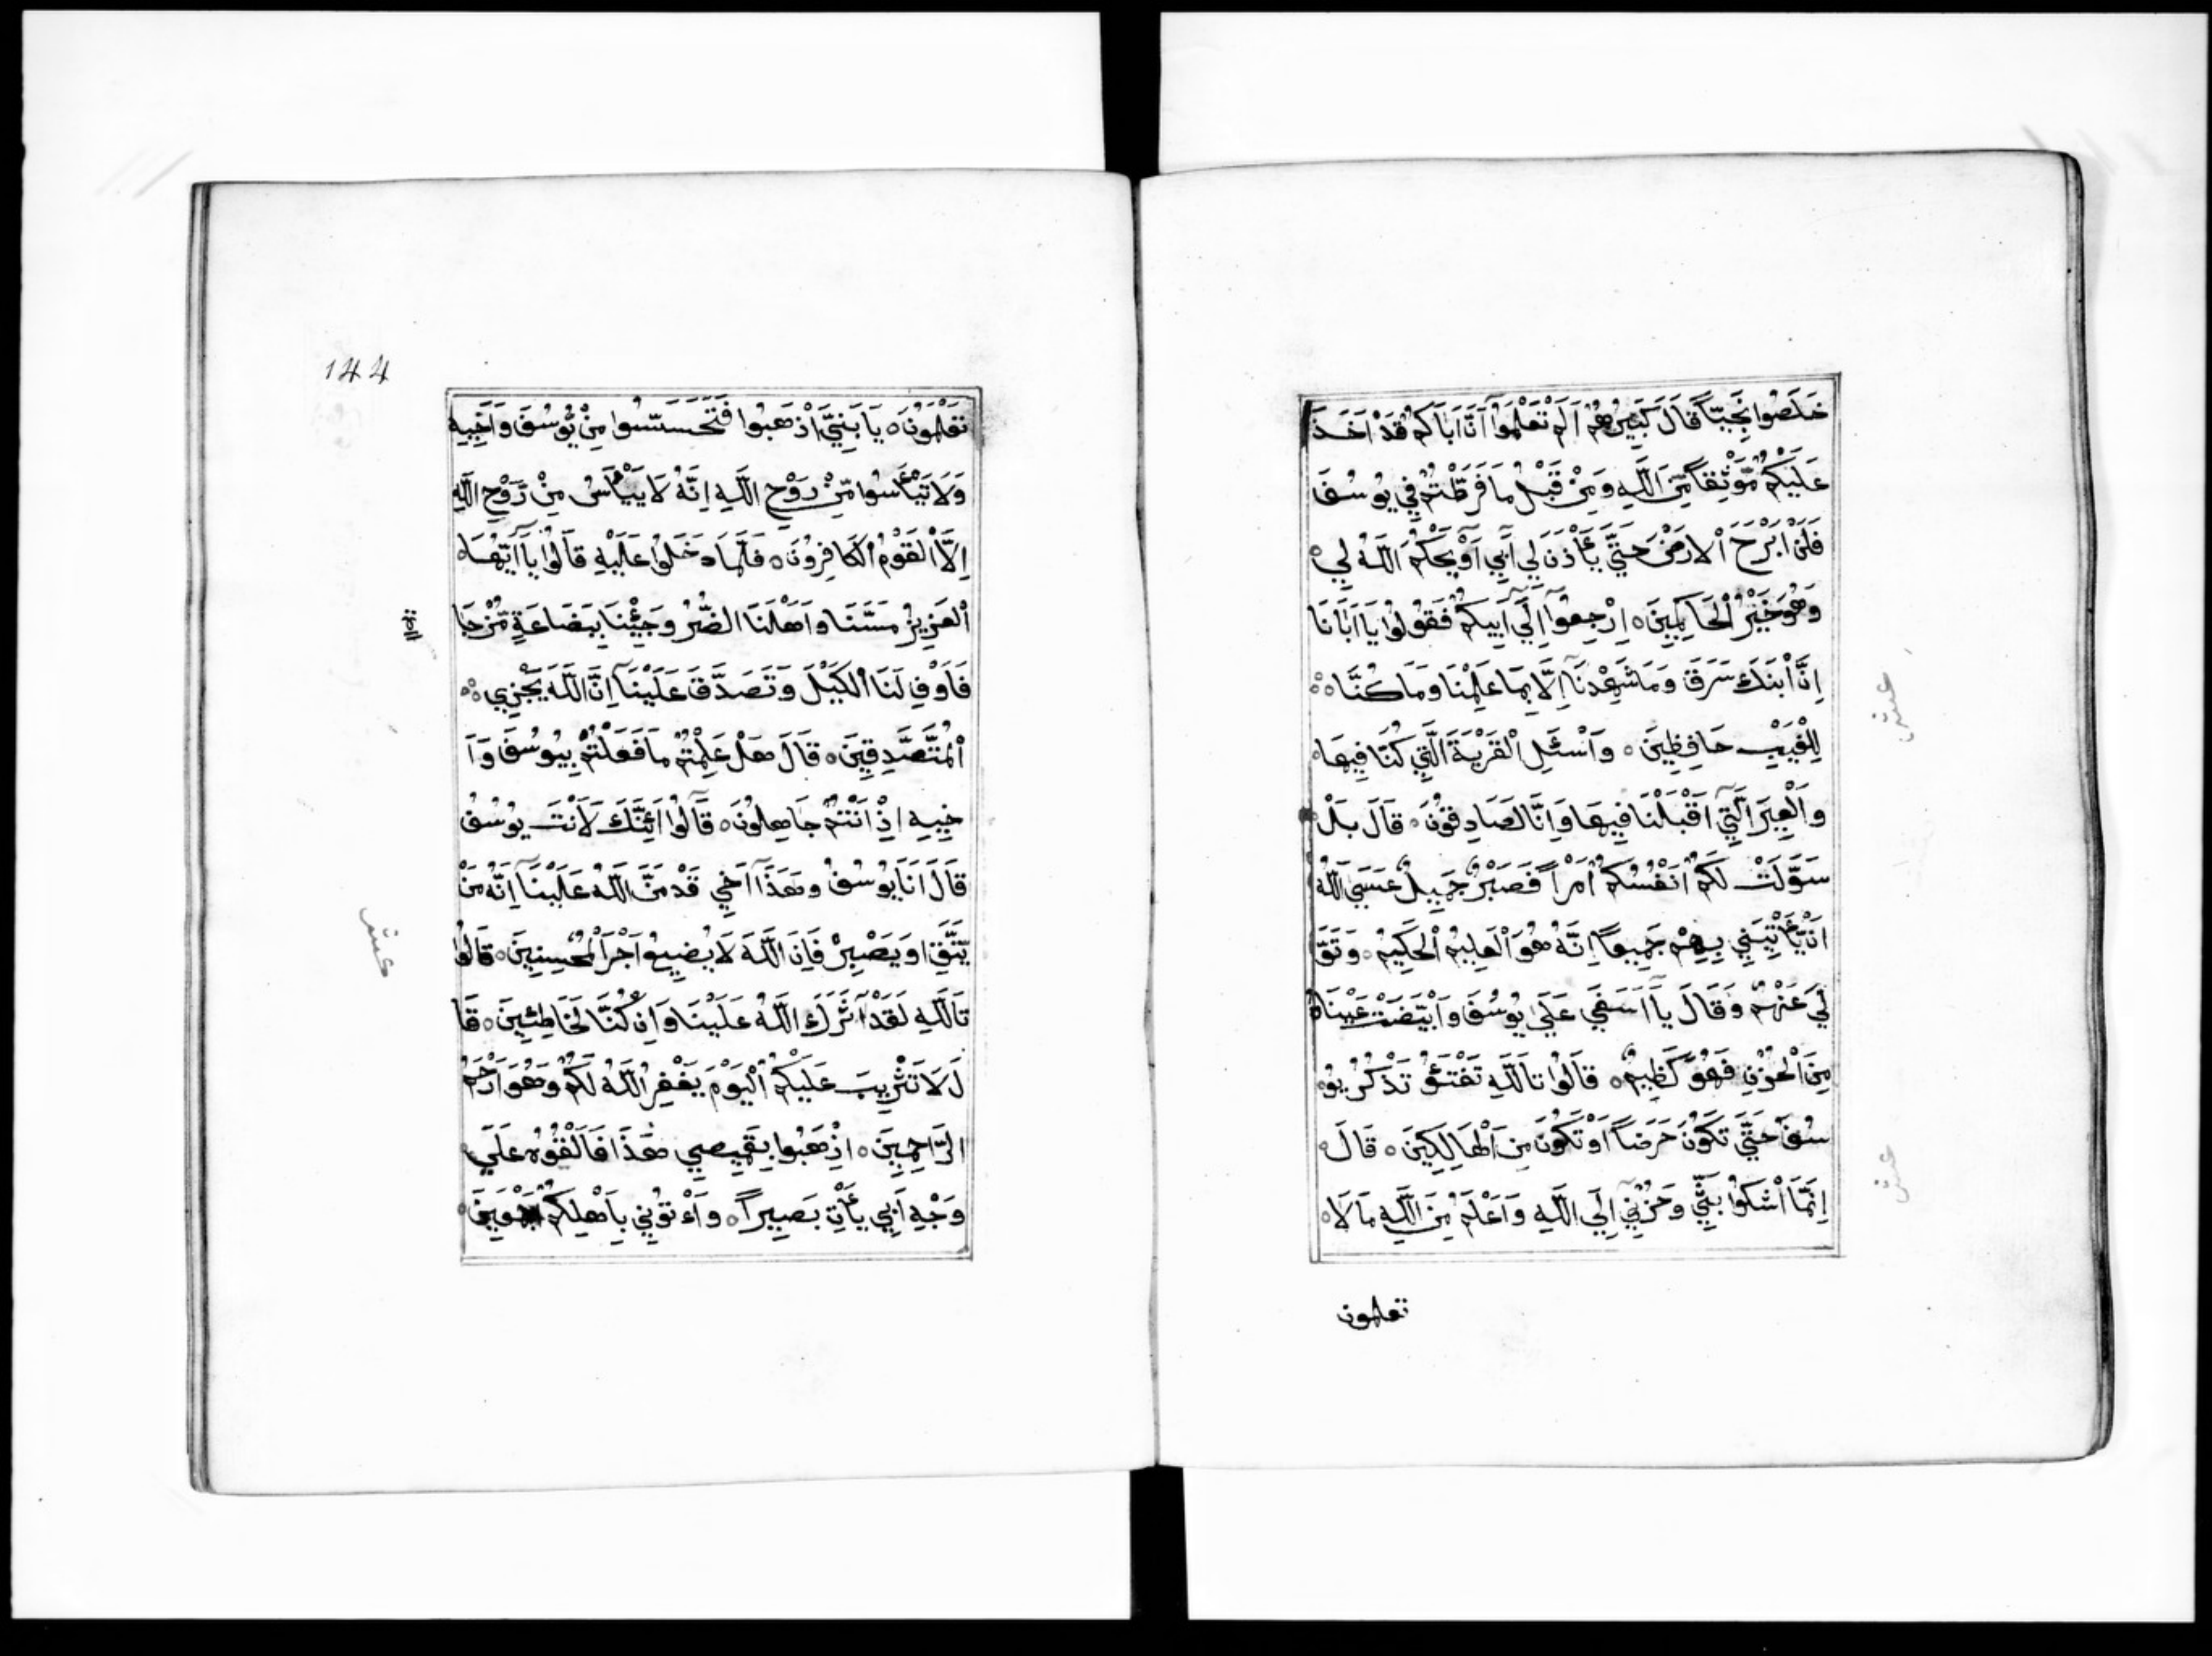 خَلَصُوا نَجِيّاً قَالَ كَبِيرُهُمْ اَلَمْ تَعْلَمُوآ اَنَّ اَبَاكُمْ قَدْ اَخَذَ
عَلَيْكُمْ مَّوْثِقاً مِّنَ اللَّهِ وَمِنْ قَبْلُ مَا فَرَّطْتُمْ فِي يُوسُفَ
فَلَنْ اَبْرَحَ الْارْضَ حَتَّي يَأْذَنَ لِي اَبِي اَوْ يَحْكُمَ اللَّهُ لِي
وَهُوَ خَيْرُ الْحَاكِمِينَ ه اِرْجِعُوآ اِلَي اَبِيكُمْ فَقُولُوا يَا اَبَانَا
اِنَّ ابْنَكَ سَرَقَ وَمَا شَهِدْنَآ اِلَّا بِمَا عَلِمْنَا وَمَا كُنَّا ه
لِلْغَيْبِ حَافِظِينَ ه وَاسْئَلِ الْقَرْيَةَ الَّتِي كُنَّا فِيهَا
وَالْعِيرَ الَّتِي اَقْبَلْنَا فِيهَا وَاِنَّا لَصَادِقُونَ ه قَالَ بَلْ
سَوَّلَتْ لَكُمْ اَنْفُسُكُمْ اَمْراً فَصَبْرٌ جَمِيلٌ عَسَي اللَّهُ
اَنْ يَّأْتِيَنِي بِهِمْ جَمِيعاً اِنَّهُ هُوَ الْعَلِيمُ الْحَكِيمُ ه وَتَوَ
لَّي عَنْهُمْ وَقَالَ يَآ اَسَفَي عَلَي يُوسُفَ وَابْيَضَّتْ عَيْنَاهُ
مِنَ الْحُزْنِ فَهُوَ كَظِيمٌ ه قَالُوا تَاللَّهِ تَفْتَؤُ تَذْكُرُ يُو
سُفَ حَتَّي تَكُونَ حَرَضاً اَوْ تَكُونَ مِنَ الْهَالِكِينَ ه قَالَ
اِنَّمَآ اَشْكُوا بَثِّي وَحُزْنِي اِلَي اللَّهِ وَاَعْلَمُ مِنَ اللَّهِ مَا لَا ه
تعلمون
عشر
عشر
144
تَعْلَمُونَ ه يَا بَنِيَّ اذْهَبُوا فَتَحَسَّسُوا مِنْ يُّوسُفَ وَاَخِيهِ
وَلَا تَيْأَسُوا مِنْ رَوْحِ اللَّهِ اِنَّهُ لَا يَيْأَسُ مِنْ رَّوْحِ اللَّهِ
اِلَّا الْقَوْمُ الْكَافِرُونَ ه فَلَمَّا دَخَلُوا عَلَيْهِ قَالُوا يَآ اَيُّهَا ه
الْعَزِيزُ مَسَّنَا وَاَهْلَنَا الضُّرُّ وَجِئْنَا بِبَضَاعَةٍ مُّزْجَا
فَاَوْفِ لَنَا الْكَيْلَ وَتَصَدَّقْ عَلَيْنَآ اِنَّ اللَّهَ يَجْزِي ه
الْمُتَصَّدِقِينَ ه قَالَ هَلْ عَلِمْتُمْ مَا فَعَلْتُمْ بِيُوسُفَ وَاَ
خِيهِ اِذْ اَنْتُمْ جَاهِلُونَ ه قَالُوا اَئِنَّكَ لَاَنْتَ يُوسُفُ
قَالَ اَنَا يُوسُفُ وَهَذَآ اَخِي قَدْ مَنَّ اللَّهُ عَلَيْنَآ اِنَّهُ مَنْ
يَّتَّقِ اوَيَصْبِرْ فَاِنَّ اللَّهَ لَا يُضِيعُ اَجْرَ الْمُحْسِنِينَ ه قَالُوا
تَاللَّهِ لَقَدْ آثَرَكَ اللَّهُ عَلَيْنَا وَاِنْ كُنَّا لَخَاطِئِينَ ه قَا
لَ لَا تَثْرِيبَ عَلَيْكُمُ الْيَوْمَ يَغْفِرُ اللَّهُ لَكُمْ وَهُوَ اَرْحَمُ
الرَّاحِمِينَ ه اِذْهَبُوا بِقَمِيصِي هَذَا فَاَلْقُوهُ عَلَي
وَجْهِ اَبِي يَأْتِ بَصِيراً ه وَأْتُونِي بِاَهْلِكُمْ
ة
عشر